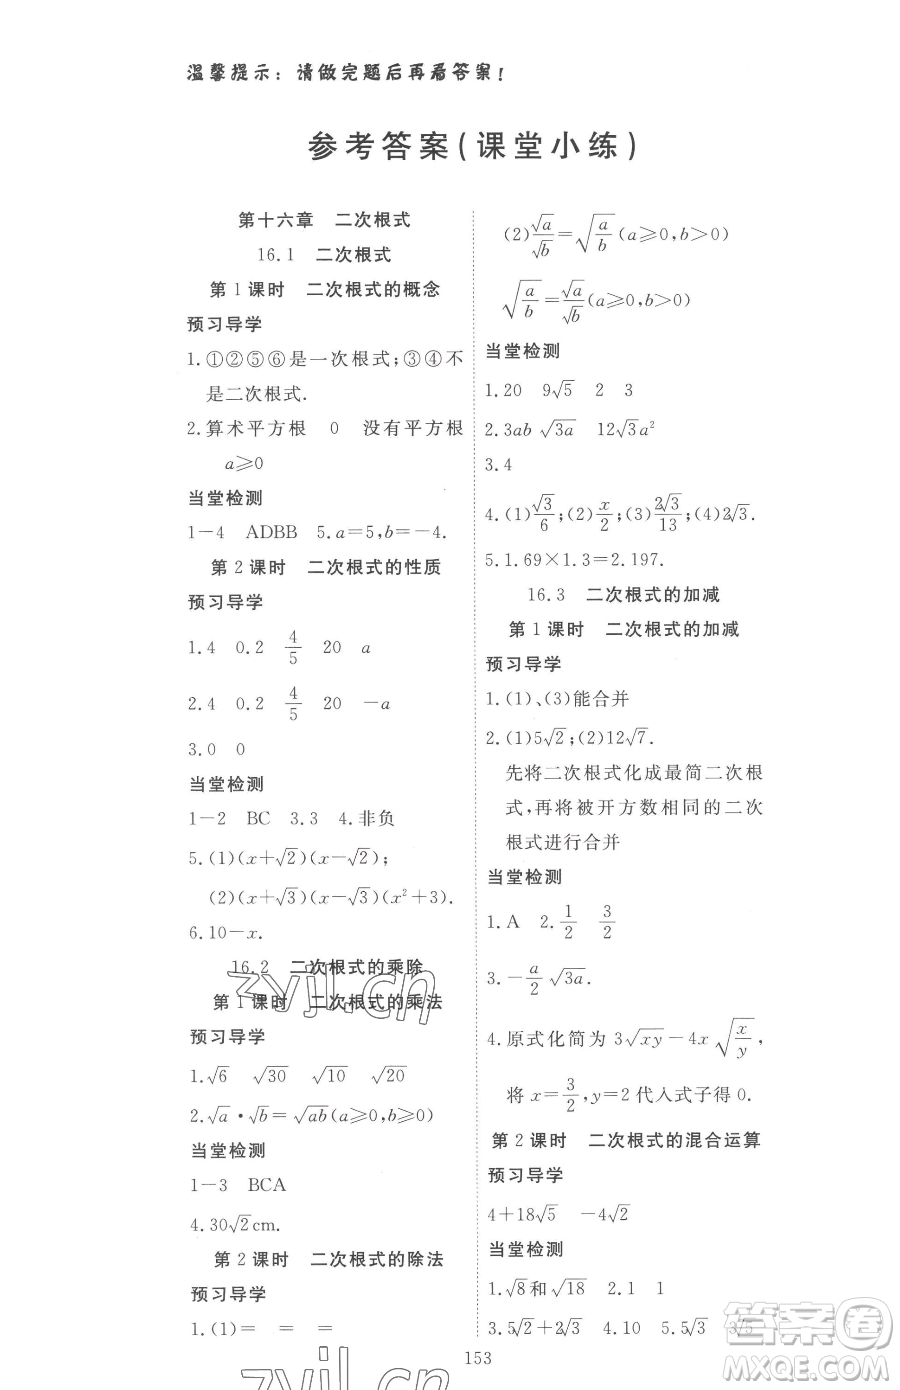 温馨提示：请做完题后再看答案！
参考答案(课堂小练)
第十六章　二次根式
16.1　二次根式
第1课时　二次根式的概念
预习导学
1.①②⑤⑥是一次根式;③④不
是二次根式.
2.算术平方根　0　没有平方根
a⩾0
当堂检测
1-4　ADBB　5.a=5,b=-4.
第2课时　二次根式的性质
预习导学
1.4　0.2　4/5　20　a
2.4　0.2　4/5　20　-a
3.0　0
当堂检测
1-2　BC　3.3　4.非负
5.(1)(x+√2)(x-√2);
(2)(x+√3)(x-√3)(x²+3).
6.10-x.
16.2　二次根式的乘除
第1课时　二次根式的乘法
预习导学
1.√6　√30　√10　√20
2.√a·√b=√ab(a⩾0,b⩾0)
当堂检测
1-3　BCA
4.30√2cm.
第2课时　二次根式的除法
预习导学
1.(1)=　=　=
(2)√a/√b=√(a/b)(a⩾0,b>0)
√(a/b)=√a/√b(a⩾0,b>0)
当堂检测
1.20　9√5　2　3
2.3ab√3a　12√3a²
3.4
4.(1)√3/6;(2)x/2;(3)2√3/13;(4)2√3.
5.1.69×1.3=2.197.
16.3　二次根式的加减
第1课时　二次根式的加减
预习导学
1.(1)、(3)能合并
2.(1)5√2;(2)12√7.
先将二次根式化成最简二次根
式,再将被开方数相同的二次
根式进行合并
当堂检测
1.A　2.1/2　3/2
3.-a/2√3a.
4.原式化简为3√xy-4x√(x/y),
将x=3/2,y=2代人式子得0.
第2课时　二次根式的混合运算
预习导学
4+18√5　-4√2
当堂检测
1.√8和√18　2.1　1
3.5√2+2√3　4.10　5.5√3　3√5
153
zyjl.cn
zyjl.cn
答案圈
MXQE.COM